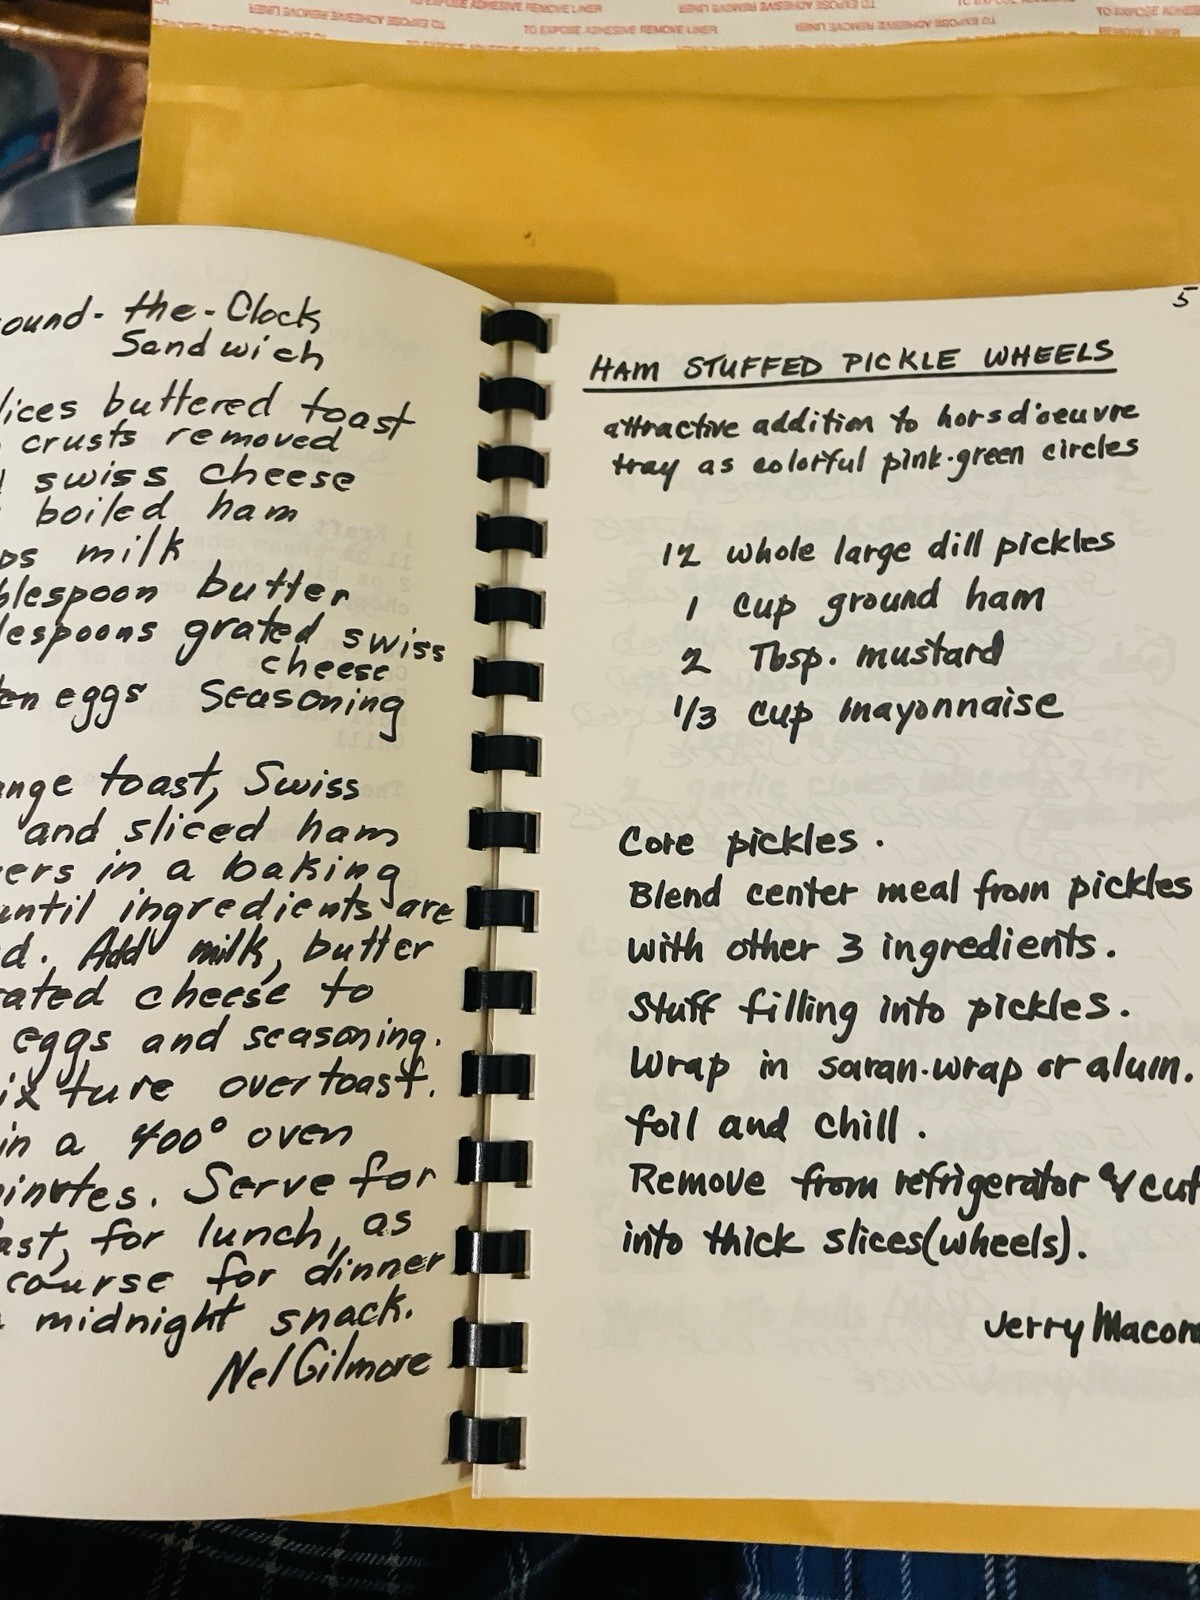 TO EXPOSE ADHESIVE REMOVE LINER
TO EXPOSE ADHESIVE REMOVE LINER
TO EXPOSE ADHESIVE REMOVE LINER
TO EXPOSE ADHESIVE REMOVE LINER
TO EXPOSE ADHESIVE REMOVE LINER
ound-the-Clock
Sandwich
lices buttered toast
crusts removed
swiss cheese
boiled ham
ps milk
blespoon butter
lespoons grated swiss
cheese
en eggs Seasoning
ange toast, Swiss
and sliced ham
ers in a baking
until ingredients are
d. Add milk, butter
rated cheese to
eggs and seasoning.
ixture over toast.
in a 400° oven
inutes. Serve for
ast, for lunch, as
course for dinner
midnight snack.
Nel Gilmore
5
HAM STUFFED PICKLE WHEELS
attractive addition to hors d'oeuvre
tray as colorful pink-green circles
12 whole large dill pickles
1 cup ground ham
2 Tbsp. mustard
1/3 cup mayonnaise
Core pickles.
Blend center meal from pickles
with other 3 ingredients.
Stuff filling into pickles.
Wrap in saran-wrap or alum.
foil and chill.
Remove from refrigerator & cut
into thick slices (wheels).
Jerry Macom